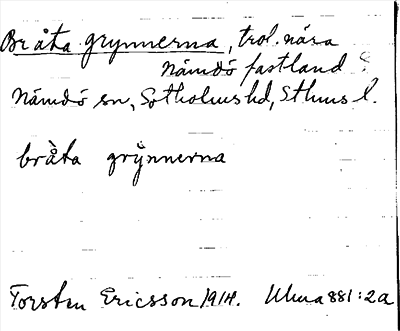 Bråta grynnerna, trol. nära
Nämdö fastland
Nämdö sn, Sotholms hd, Sthms l.
bråta grynnerna
Torsten Ericsson 1914. Ulma 881:2a